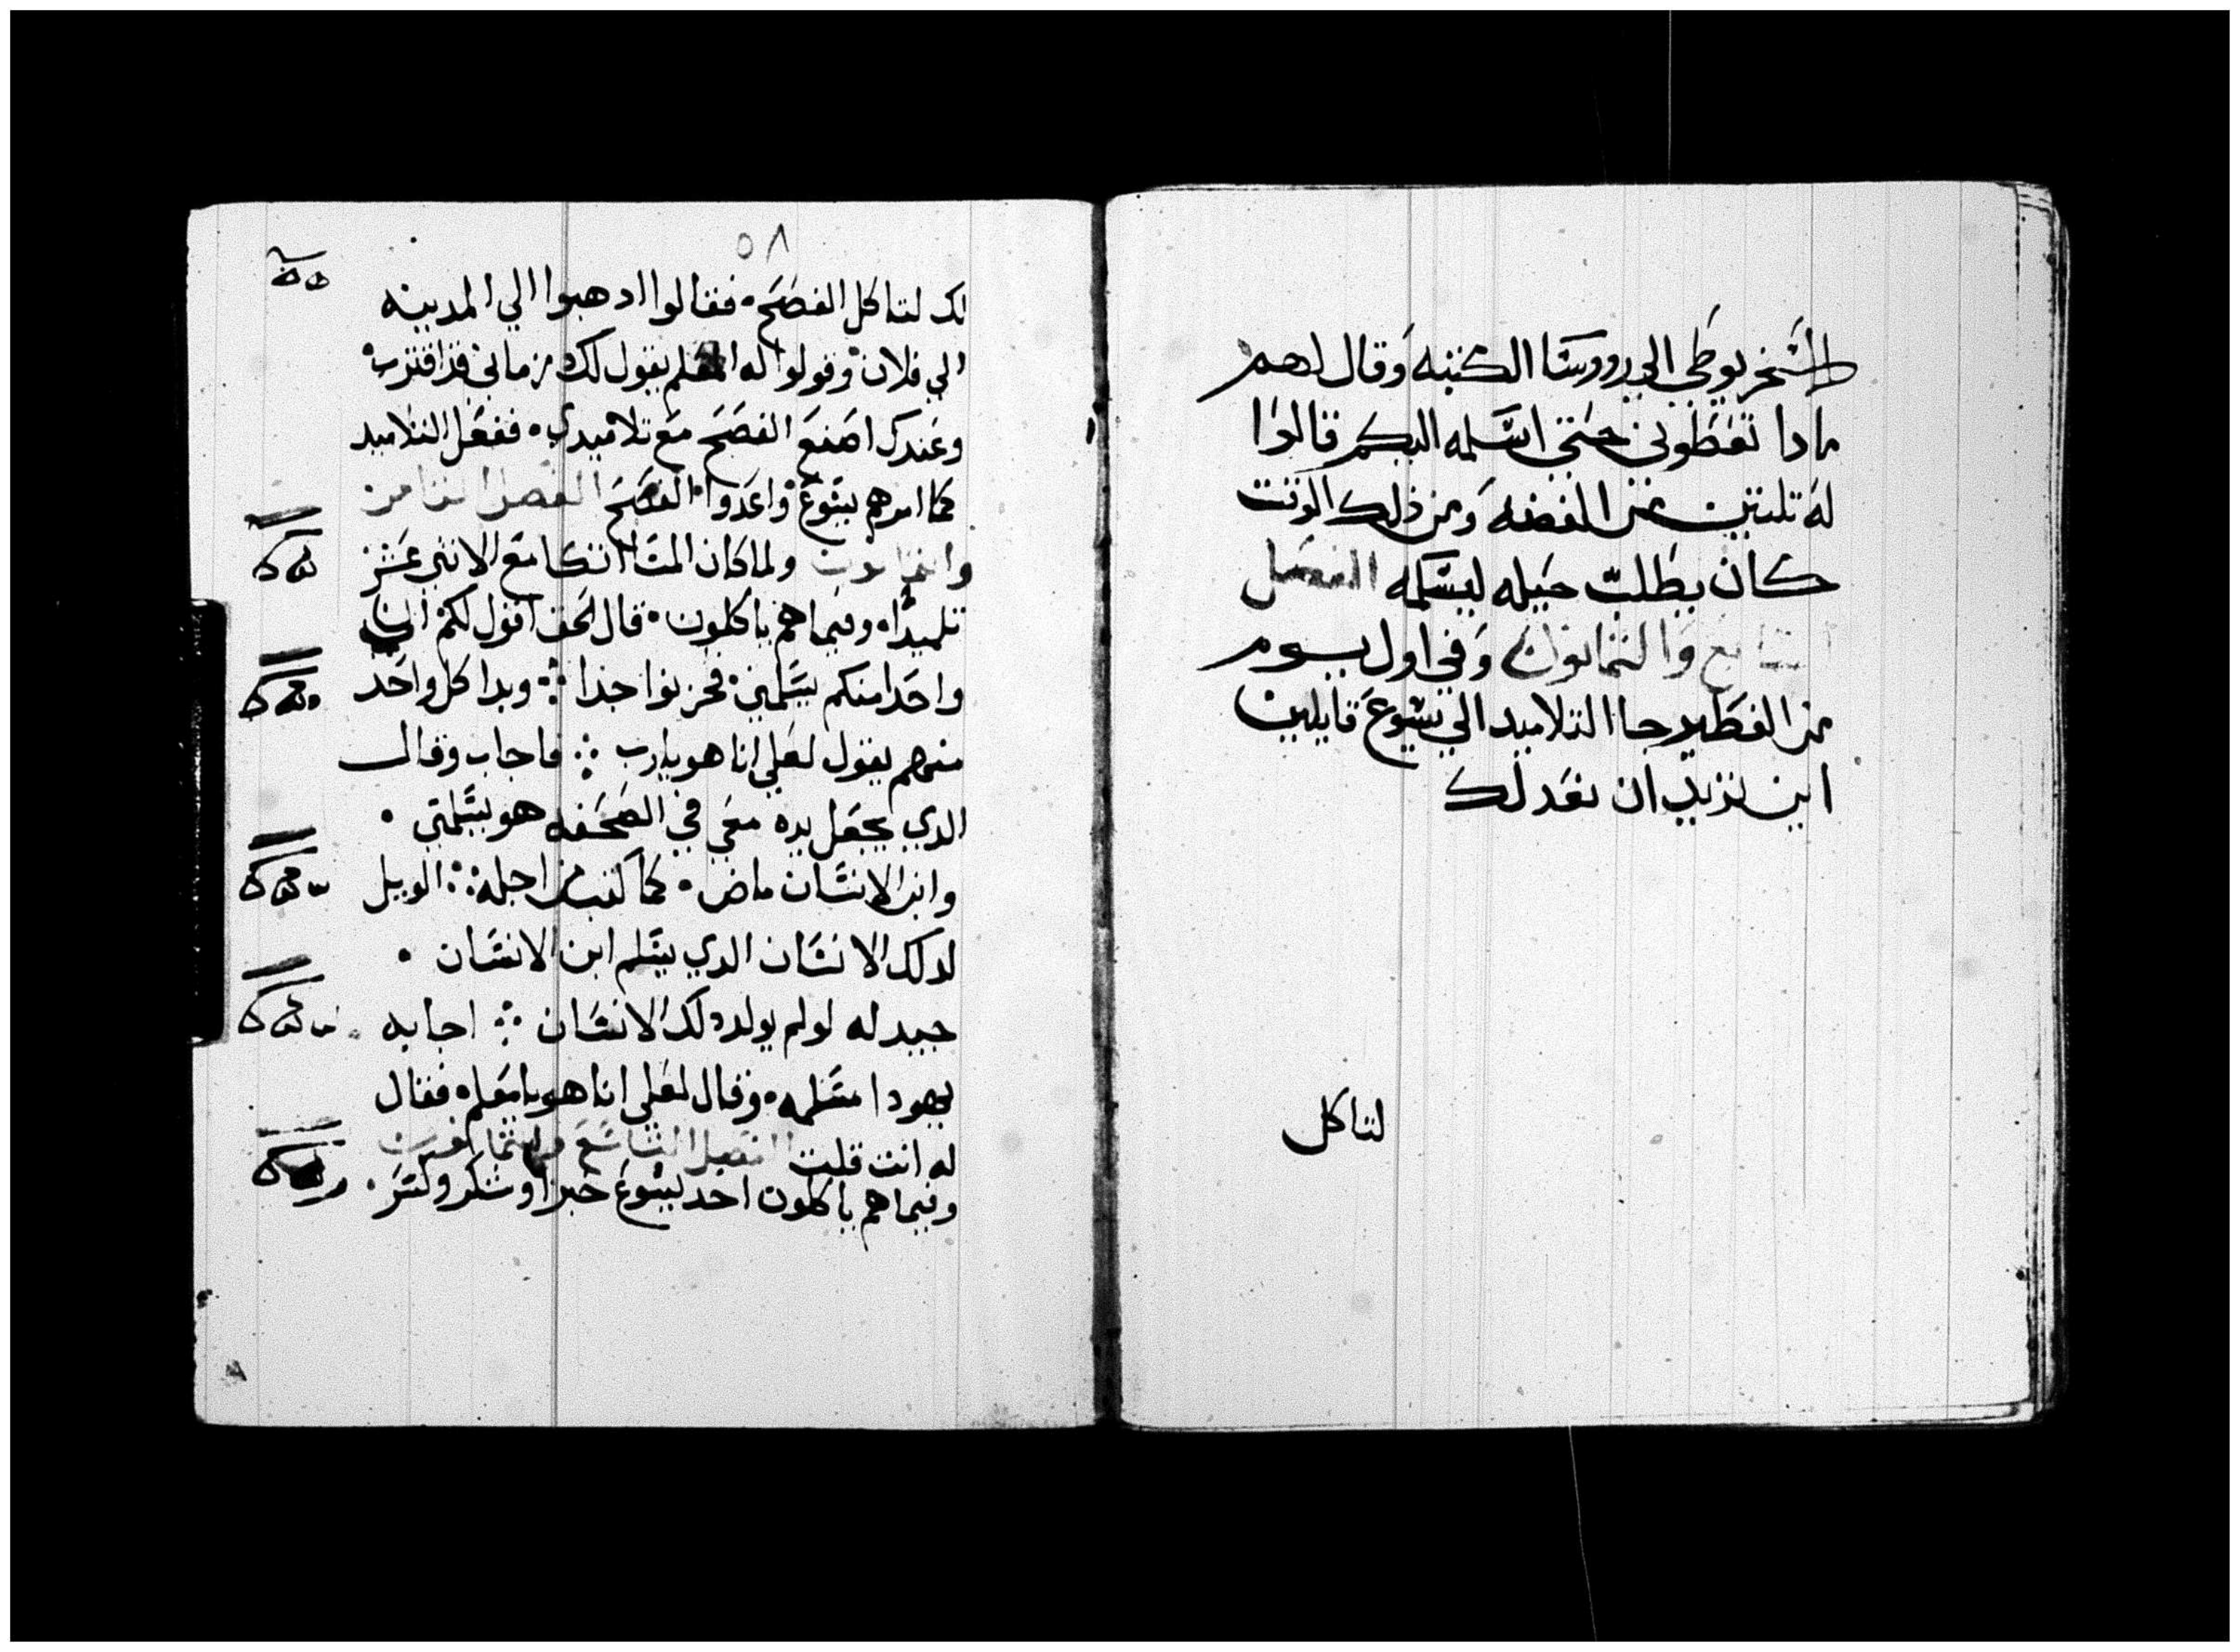 السخريوطي الي رووسا الكتبه وقال لهم
مادا تعطوني حتي اسلمه اليكم قالوا
له تلتين من الفضه ومن ذلك الوقت
كان يطلب حيله ليسلمه الفصل
السابع والتمانون وفي اول يوم
من الفطير جا التلاميد الي يسوع قايلين
اين تريد ان نعد لك
لتاكل
٥٨
لك لتاكل الفصح. فقالوا ادهبوا الي المدينه
الي فلان وقولوا له المعلم يقول لك زماني قد اقترب
وعندك اصنع الفصح مع تلاميدي. ففعل التلاميد
كما امرهم يسوع واعدوا الفصح الفصل التامن
والتمانون ولما كان المسا اتكا مع الاتني عشر
تلميدا. وفيما هم ياكلون. قال الحق اقول لكم ان
واحدا منكم يسلمني فحزنوا جدا ⁘ وبدا كل واحد
منهم يقول لعلي انا هو يارب ⁘ فاجاب وقال
الدي يجعل يده معي في الصحفه هو يسلمني .
وابن الانسان ماض. كما كتب من اجله ⁘ الويل
لدلك الانسان الدي يسلم ابن الانسان .
جيد له لو لم يولد دلك الانسان ⁘ اجابه
يهودا مسلمه. وقال لعلي انا هو يا معلم. فقال
له انت قلت الفصل التاسع والتمانون
وفيما هم ياكلون اخد يسوع خبزا وشكر وكسر .